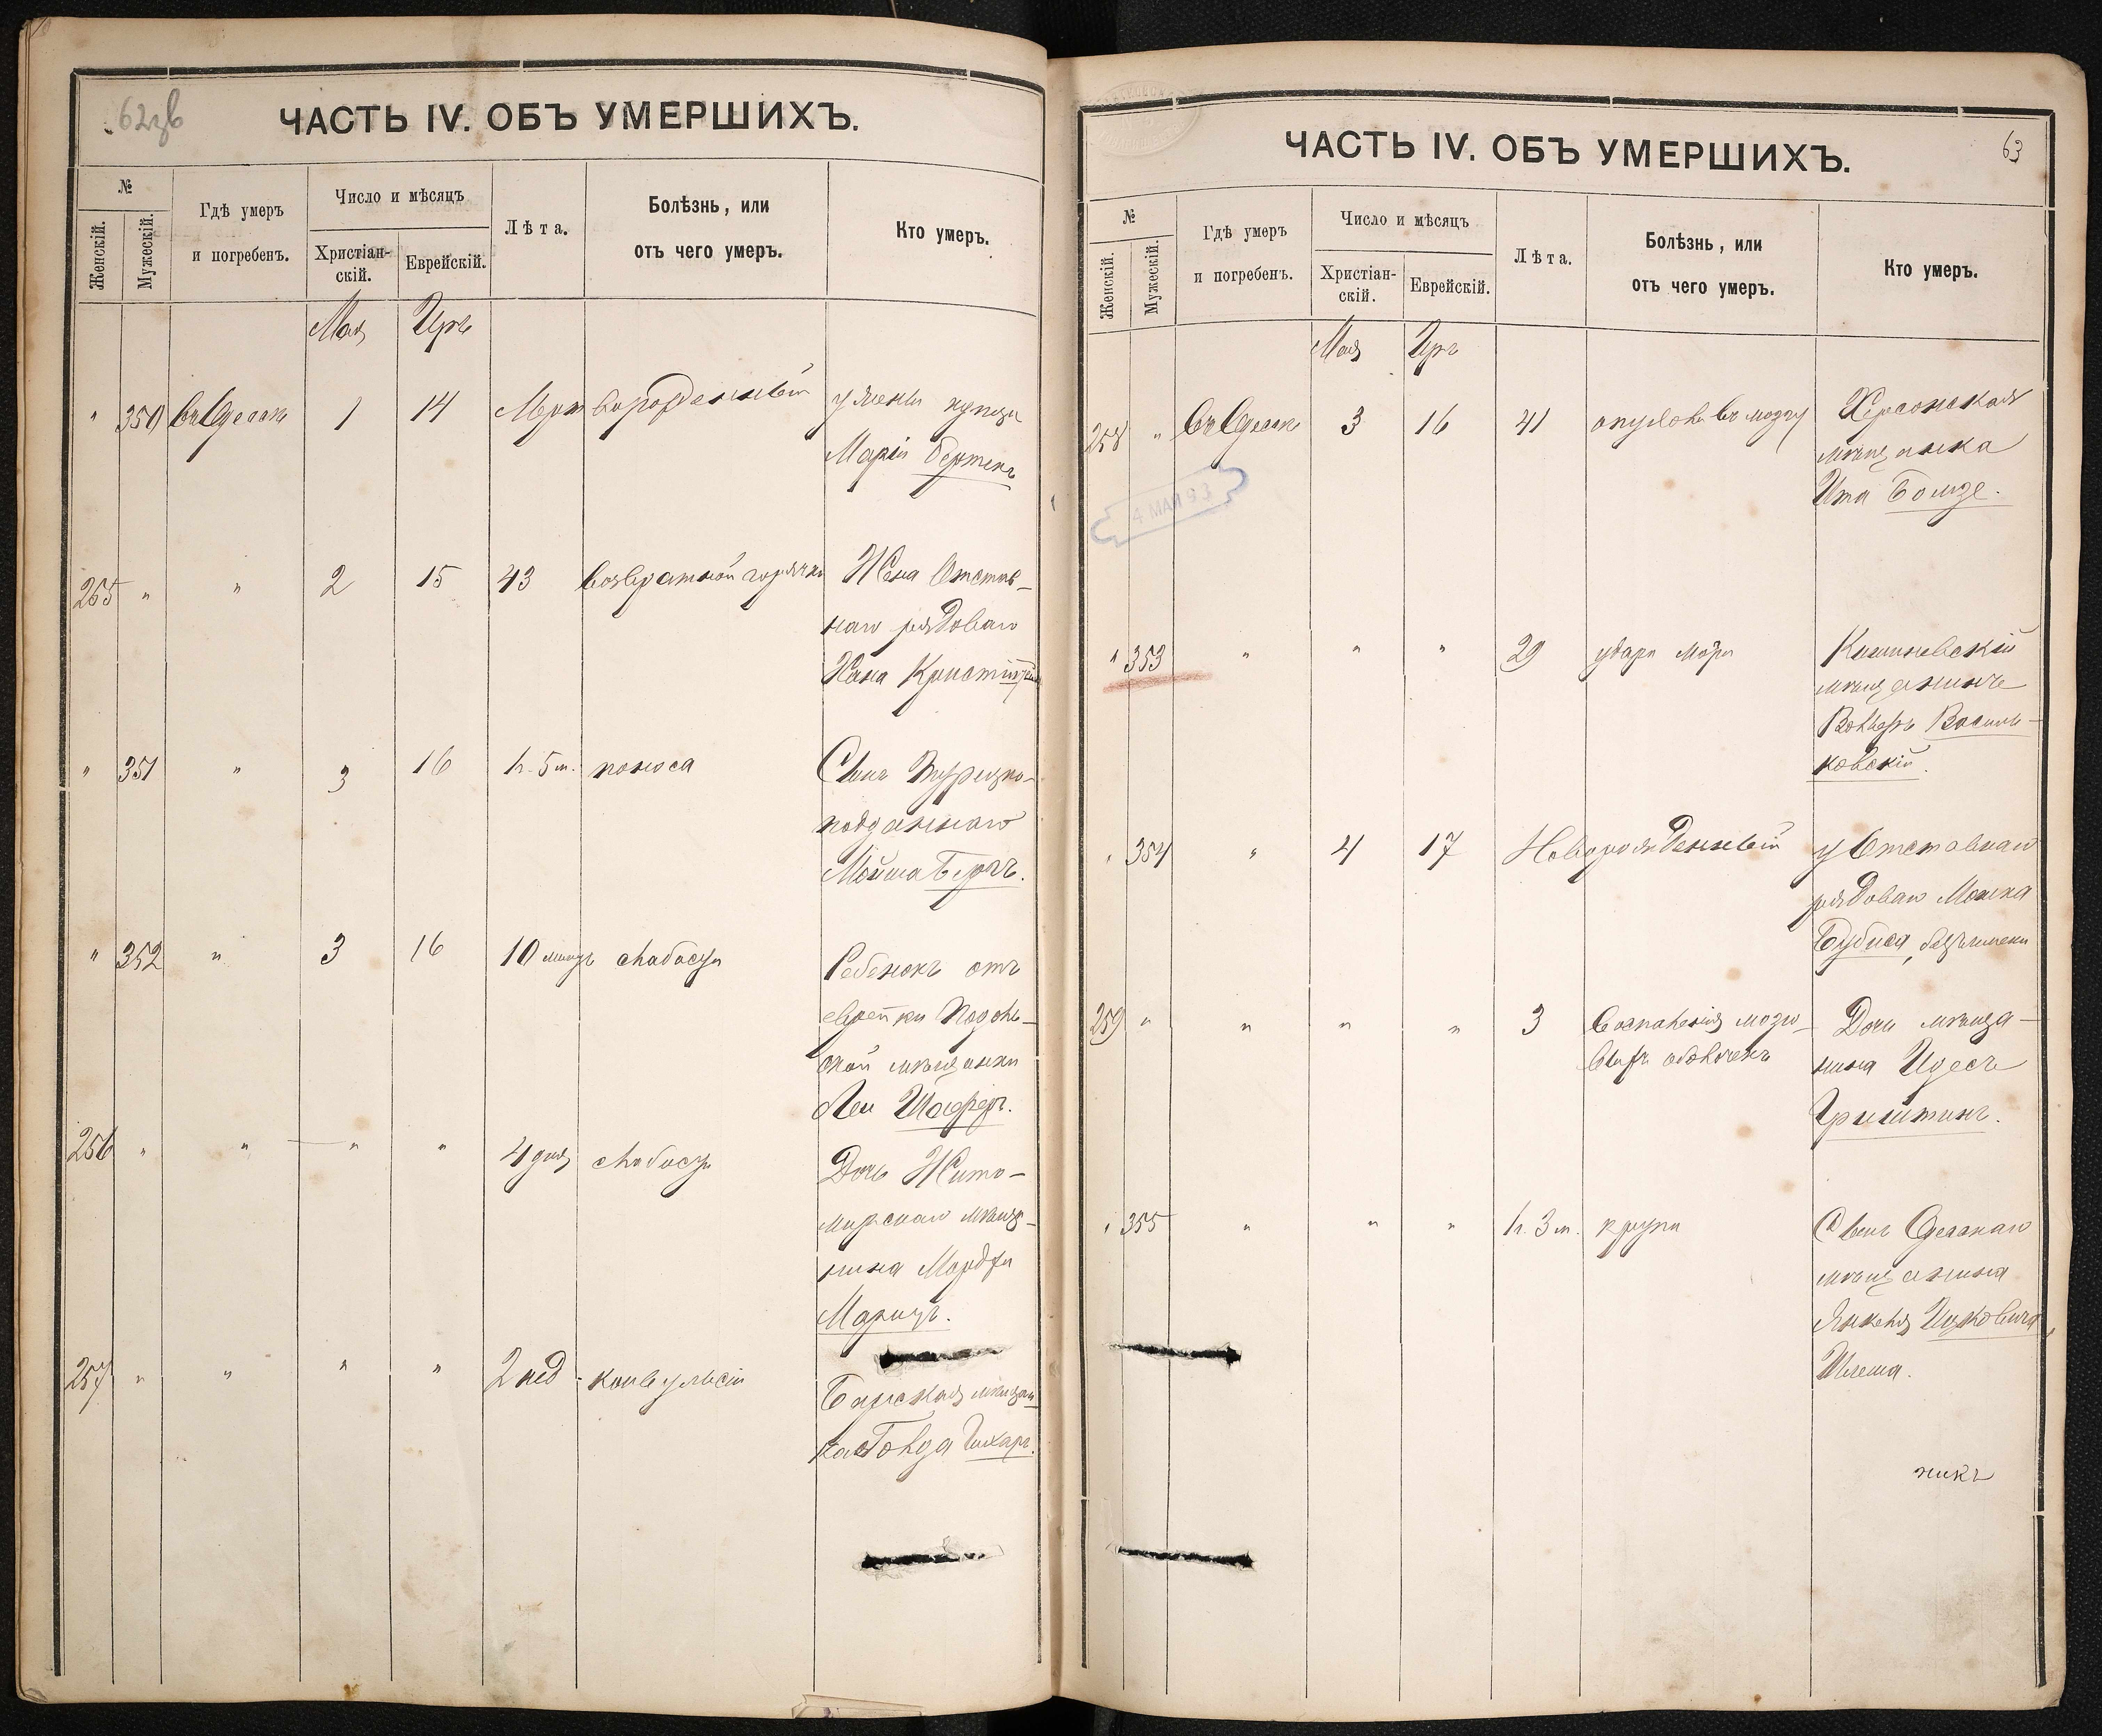 62зв
ЧАСТЬ IV. ОБЪ УМЕРШИХЪ.
№
Женскій.
Мужескій.
Гдѣ умеръ
и погребенъ.
Число и мѣсяцъ
Христіан-
скій.
Еврейскій.
Лѣта.
Болѣзнь, или
отъ чего умеръ.
Кто умеръ.
Мая Иръ
" 350 Въ Одессѣ 1 14 Мертворожденный у жены купца
Маріи
265 " " 2 15 43 возвратной горячки Жена Отстав-
наго рядоваго
Хана
" 351 " 3 16 1 г. 5 м. поноса Сынъ Турецко-
подданнаго
Мойша Бергъ.
" 352 " 3 16 10 минутъ слабости Ребенокъ отъ
еврейки Подоль-
ской мѣщанки
Леи Шафферъ.
256 " " " " 4 дня слабости Дочь Жито-
мирскаго мѣща-
нина
Марицъ.
257 " " " " 2 нед. конвульсіи Барская мѣщан-
ка Голда
63
ЧАСТЬ IV. ОБЪ УМЕРШИХЪ.
№
Женскій.
Мужескій.
Гдѣ умеръ
и погребенъ.
Число и мѣсяцъ
Христіан-
скій.
Еврейскій.
Лѣта.
Болѣзнь, или
отъ чего умеръ.
Кто умеръ.
Мая Иръ
258 " Въ Одессѣ 3 16 41 опухоль въ мозгу Херсонская
мѣщанка
Ита
4 МАЙ 93
" 353 " " " 29 удара Кишиневскій
мѣщанинъ
Волько Василь-
ковскій.
" 354 " 4 17 Новорожденный у Отставнаго
рядоваго Мошка
Бубиса,
259 " " " " 3 воспаленія мозго-
выхъ оболочекъ Дочь мѣща-
нина Идесъ
" 355 " " " 1 г. 3 м. крупа Сынъ Одесскаго
мѣщанина
Янкеля Ицковича,
Шлема.
никъ